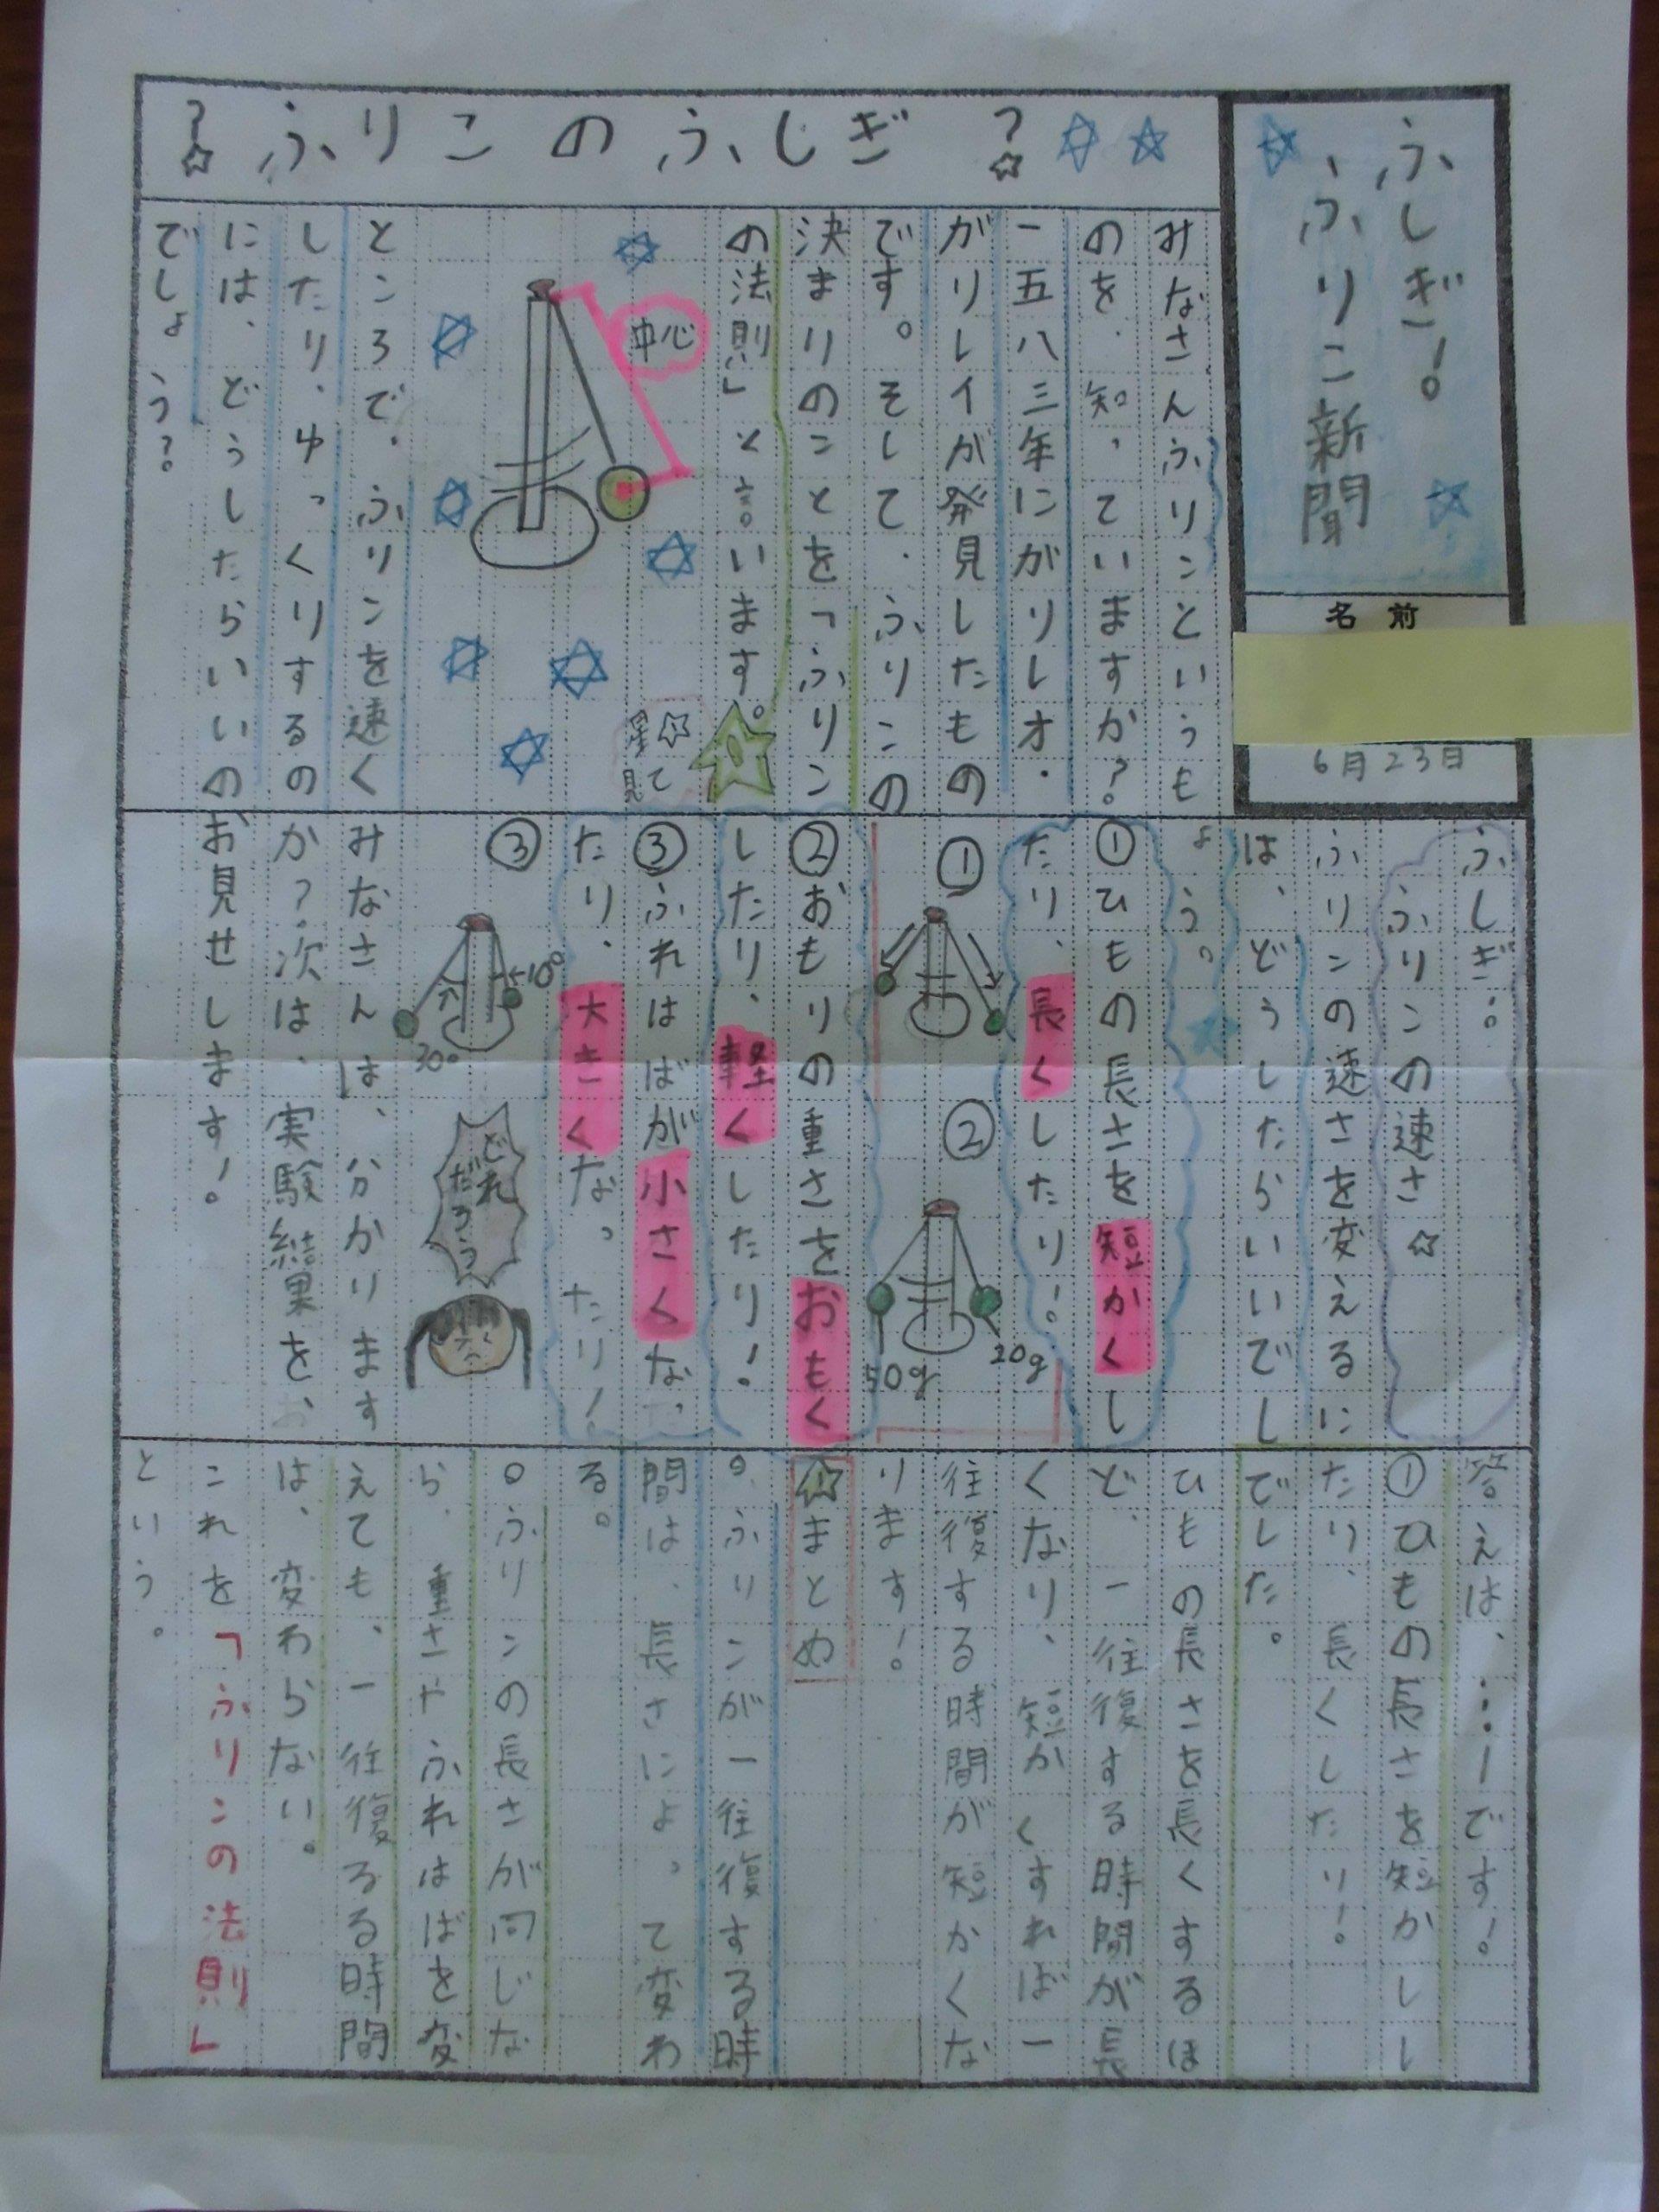 ふしぎ!。
ふりこ新聞
名前
6月23日
?ふりこのふしぎ?
みなさんふりこというも
のを、知っていますか?
一五八三年にガリレオ・
ガリレイが発見したもの
です。そして、ふりこの
決まりのことを「ふりこ
の法則」と言います。
中心
星☆
見て
ところで、ふりこを速く
したり、ゆっくりするの
には、どうしたらいいの
でしょう?。
ふしぎ!。
ふりこの速さ☆
ふりこの速さを変えるに
は、どうしたらいいでし
ょう。
①ひもの長さを短かくし
たり、長くしたり!。
①
②
50g
20g
②おもりの重さをおもく
したり、軽くしたり!
③ふれはばが小さくなっ
たり、大きくなったり!
③
10°
30°
どれ
だろう
みなさんは、分かります
か?次は、実験結果を、
お見せします!。
答えは、…ーです!。
①ひもの長さを短かしし
たり、長くしたり!。
でした。
ひもの長さを長くするほ
ど、一往復する時間が長
くなり、短かくすれば一
往復する時間が短かくな
ります!。
☆まとめ
○ふりこが一往復する時
間は、長さによって変わ
る。
○ふりこの長さが同じな
ら、重さやふれはばを変
えても、一往復る時間
は、変わらない。
これを「ふりこの法則」
という。